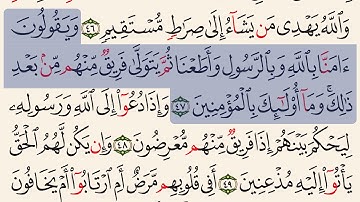 وَٱللَّهُ يَهْدِى مَن يَشَآءُ إِلَىٰ صِرَٰطٍ مُّسْتَقِيمٍ ٤٦ وَيَقُولُونَ
ءَامَنَّا بِٱللَّهِ وَبِٱلرَّسُولِ وَأَطَعْنَا ثُمَّ يَتَوَلَّىٰ فَرِيقٌ مِّنْهُم مِّنۢ بَعْدِ
ذَٰلِكَ ۚ وَمَآ أُو۟لَـٰٓئِكَ بِٱلْمُؤْمِنِينَ ٤٧ وَإِذَا دُعُوٓا۟ إِلَى ٱللَّهِ وَرَسُولِهِۦ
لِيَحْكُمَ بَيْنَهُمْ إِذَا فَرِيقٌ مِّنْهُم مُّعْرِضُونَ ٤٨ وَإِن يَكُن لَّهُمُ ٱلْحَقُّ
يَأْتُوٓا۟ إِلَيْهِ مُذْعِنِينَ ٤٩ أَفِى قُلُوبِهِم مَّرَضٌ أَمِ ٱرْتَابُوٓا۟ أَمْ يَخَافُونَ